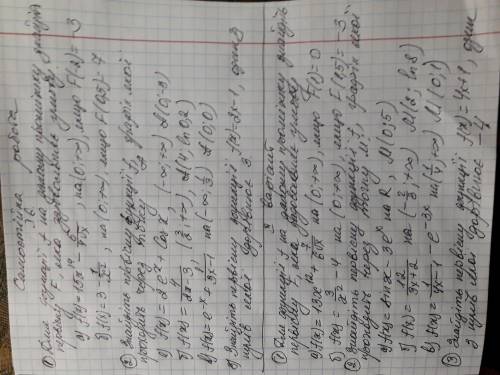 Самостійна робота
① Для функції f на даному проміжку знайдіть
первісну F, яка задовольняє умову
а) f(x)=15x⁴- на (0;+∞), якщо F(1)=-3
б) f(x)=3- на (0;+∞), якщо F(0,5)=7
② Знайдіть первісну функції f, графік якої
проходить через точку
а) f(x)=2eˣ+cosx (-∞;+∞) A(0;-8)
б) f(x)=4/(2x-3) (3/2;+∞)
в) f(x)=eˣ-1/(3x-1) на (-∞;1/3) A(0;0)
③ Знайдіть первісну функції f(x)=2x-1, один з
нулів якої дорівнює 3
варіант
① Для функції f на даному проміжку знайдіть
первісну F, яка задовольняє умову
а) на (0;+∞), якщо F(1)=0
б) f(x)=3/x²-4 на (0;+∞), якщо F(0,5)=-3
② Знайдіть первісну функції f, графік якої
проходить через точку M
а) f(x)=sinx-3eˣ на R, M(0;5)
б) f(x)=12/(3x-2)
в) f(x)=1/(4x-1)-e⁻³ˣ на (1/4;+∞)
③ Знайдіть первісну функції f(x)=4x+1, один
з нулів якої дорівнює